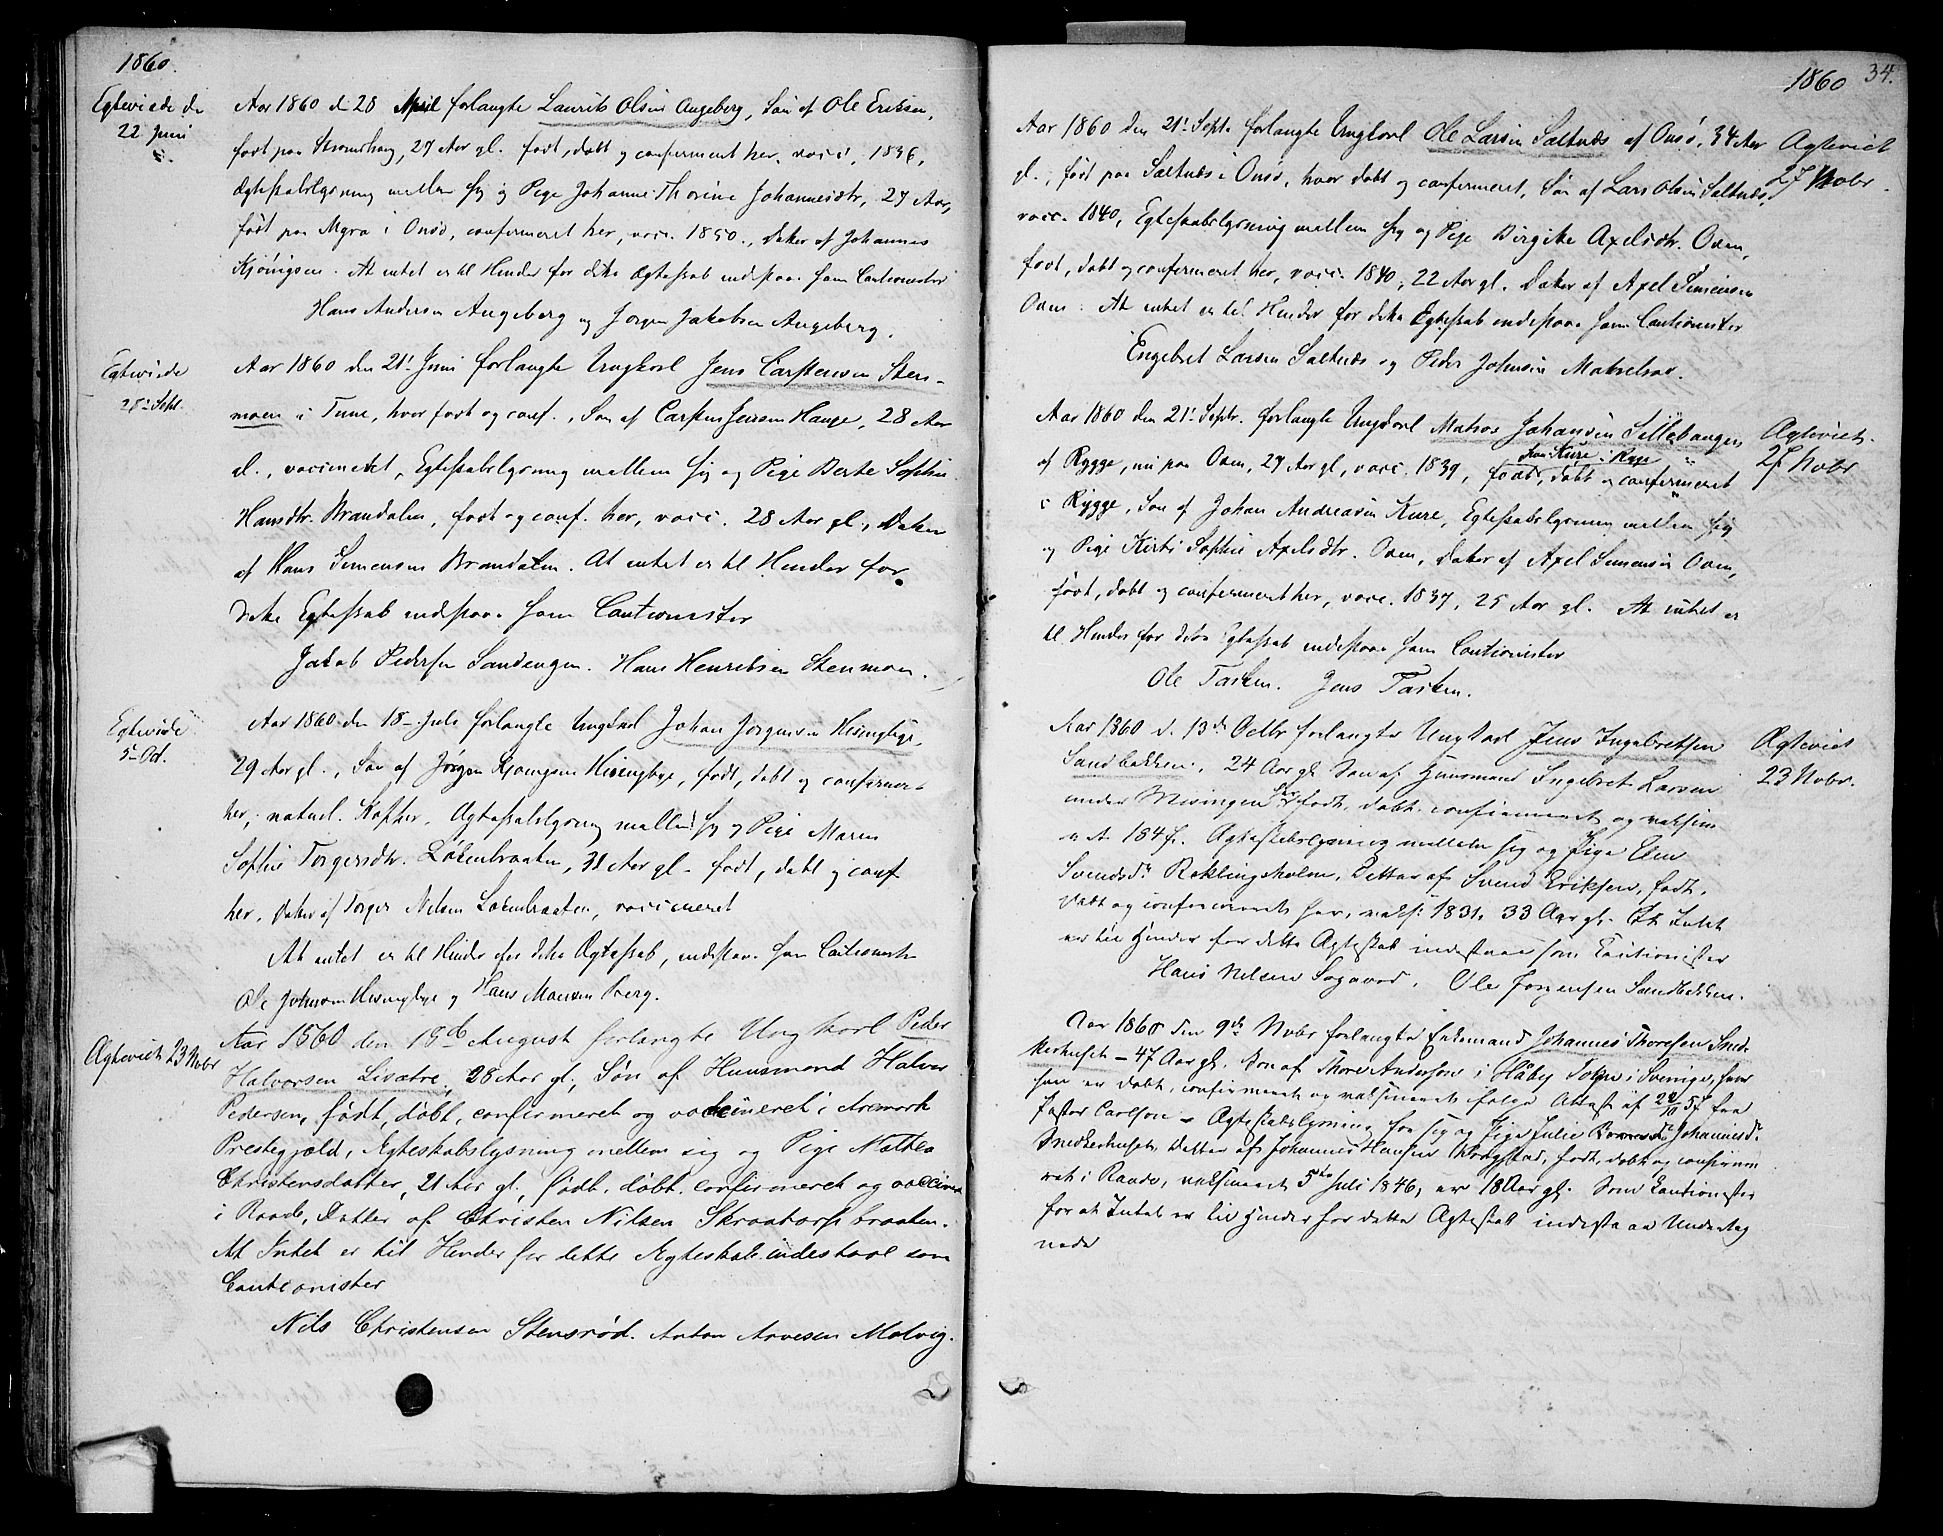 1860.
Egteviede de
22 Juni
Aar 1860 d 28 April forlangte Laurits Olsen Augeberg, Søn af Ole Eriksen,
født paa Stromshaug, 27 Aar gl. født, døbt og confirmeret her, vacc. 1836,
Ægteskabslysning mellem sig og Pige Johanne Thorine Johannesdtr, 27 Aar,
født paa Myra i Onsø, confirmeret her, vacc. 1850., Datter af Johannes
Kjønigsen. At intet er til Hinder for dette Ægteskab indestaa som Cautionister
Hans Andersen Augeberg og Jørgen Jakobsen Augeberg.
Egteviede
28 Sept.
Aar 1860 den 21' Juni forlangte Ungkarl Jens Carstensen Sten-
moen i Tune, hvor født og conf., Søn af Carsten Jensen Hauge, 28 Aar
gl., vaccineret, Egteskabslysning mellem sig og Pige Berte Sophie
Hansdtr. Brandalen, født og conf. her, vacc. 28 Aar gl., Datter
af Hans Simensen Brandalen. At intet er til Hinder for
dette Egteskab indestaa som Cautionister
Jakob Pedersen Sandengen. Hans Henriksen Stenmoen.
Egteviede
5 Oct.
Aar 1860 den 18 Juli forlangte Ungkarl Johan Jørgensen Hisingbye,
29 Aar gl., Søn af Jørgen Kjønigsen Hisingbye, født, døbt og confirmeret
her, naturl. Kopper, Ægteskabslysning mellem sig og Pige Maren
Sophie Torgersdtr. Løkenbraaten, 31 Aar gl. født, døbt og conf
her. Datter af Torger Nilsen Løkenbraaten, vaccineret
At intet er til Hinder for dette Ægteskab, indestaa som Cautionister
Ole Johnsen Hisingbye og Hans Monsen Berg.
Ægteviet 23 Novbr
Aar 1860 den 18de August forlangte Ungkarl Peder
Halvorsen Lisætre, 28 Aar gl., Søn af Huusmand Halvor
Pedersen, født, døbt, confirmeret og vaccineret i Aremark
Prestegjæld, Ægteskabslysning mellem sig og Pige Mathea
Christensdatter, 21 Aar gl., født, døbt, confirmeret og vaccineret
i Raade, Datter af Christen Nilsen Skraatorpbraaten.
At Intet er til Hinder for dette Ægteskab indestaae som
Cautionister
Nils Christensen Stensrød. Anton Arvesen Molvig.
1860 34.
Aar 1860 den 21' Sept. forlangte Ungkarl Ole Larsen Saltnæs af Onsø, 34 Aar
gl., født paa Saltnæs i Onsø, hvor døbt og confirmeret, Søn af Lars Olsen Saltnæs,
vacc. 1840, Egteskabslysning mellem sig og Pige Birgitte Axelsdtr. Oven,
født, døbt og confirmeret her, vacc. 1840, 22 Aar gl. Datter af Axel Simensen
Oven. At intet er til Hinder for dette Egteskab indestaa som Cautionister
Engebret Larsen Saltnæs og Peder Johnsen
Ægteviet
27 Novbr.
Aar 1860 den 21' Septr. forlangte Ungkarl Matros Johansen Sillebaugen
af Rygge, nu paa Oven, 27 Aar gl, vacc. 1839, født, døbt og confirmeret
paa Kure i Rygge
i Rygge, Søn af Johan Andreasen Kure, Egteskabslysning mellem sig
og Pige Kirsti Sophie Axelsdtr. Oven, Datter af Axel Simensen Oven,
født, døbt og confirmeret her, vacc. 1837, 25 Aar gl. At intet er
til Hinder for dette Egteskab indestaa som Cautionister
Ole Tasken. Jens Tasken.
Ægteviet.
27 Novbr
Aar 1860 d. 13de Octbr forlangte Ungkarl Jens Ingebretsen
Sandbakken, 24 Aar gl. Søn af Huusmand Ingebret Larsen
under Missingen, født, døbt, confirmeret og vaksine-
ret 1847. Ægteskabslysning mellem sig og Pige Elen
Svendsdr. Røklingsholm, Datter af Svend Eriksen, født,
døbt og confirmeret her, vaks. 1831. 33 Aar gl. At Intet
er til Hinder for dette Ægteskab indestaae som Cautionister
Hans Nilsen Sogaard, Ole Jørgensen Sandbakken.
Ægteviet
23 Novbr.
Aar 1860 den 9de Novbr forlangte Enkemand Johannes Thoresen Sned-
kerhuset – 47 Aar gl. Søn af Thore Andersen i Håby Sogn i Sverige, hvor
han er døbt, confirmeret og vaksineret følge Attest af 22/11 57 fra
Pastor Carlson – Ægteskabslysning for sig og Pige Julie Johannesdr.
Snedkerhuset, Datter af Johannes Hansen Krogstad, født, døbt og confirme-
ret i Raade, vaksineret 5te Juli 1846, er 18 Aar gl. Som Cautionister
for at Intet er til Hinder for dette Ægteskab indestaae Underteg-
nede